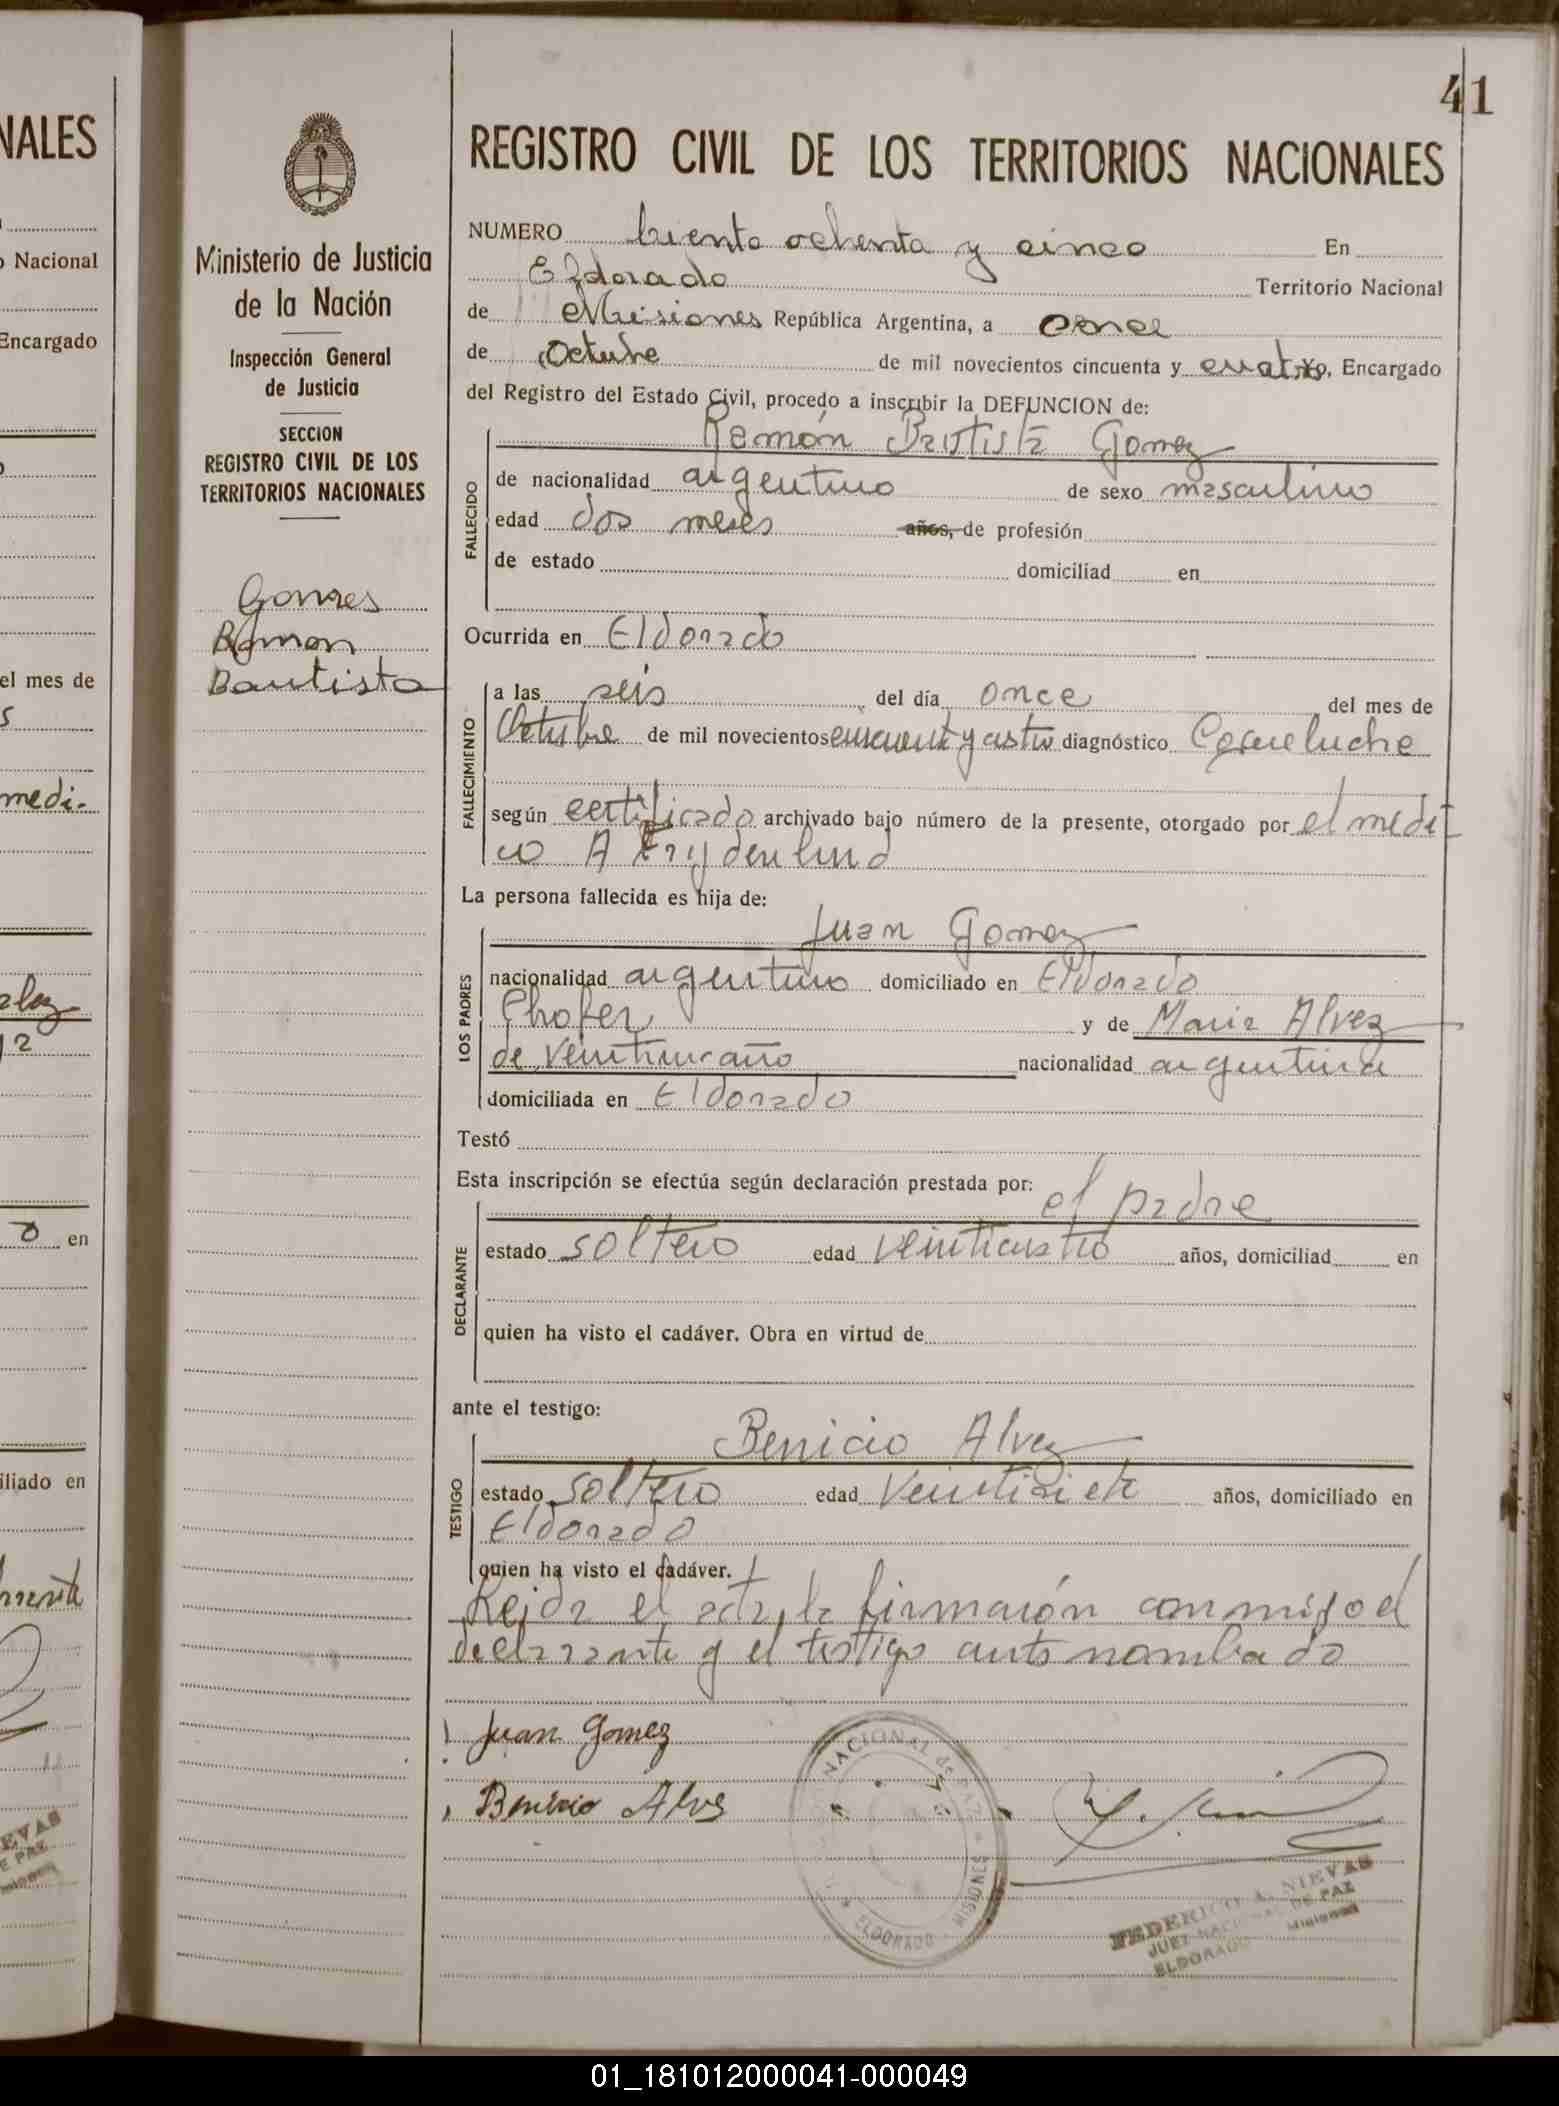 41
NALES
REGISTRO CIVIL DE LOS TERRITORIOS NACIONALES
Nacional
Encargado
el mes de
s
medi-
alez
12
o en
iliado en
EVAS
E PAZ
Misiones
Ministerio de Justicia
de la Nación
Inspección General
de Justicia
SECCION
REGISTRO CIVIL DE LOS
TERRITORIOS NACIONALES
Gomes
Ramon
Bautista
NUMERO Ciento ochenta y cinco En
Eldorado Territorio Nacional
de Misiones República Argentina, a once
de Octubre de mil novecientos cincuenta y cuatro, Encargado
del Registro del Estado Civil, procedo a inscribir la DEFUNCION de:
Ramón Bautista Gomez
FALLECIDO
de nacionalidad argentino de sexo masculino
edad dos meses años, de profesión
de estado domiciliad en
Ocurrida en Eldorado
FALLECIMIENTO
a las seis del día once del mes de
Octubre de mil novecientos cincuenta y cuatro diagnóstico Coqueluche
según certificado archivado bajo número de la presente, otorgado por el medi
co A
La persona fallecida es hija de:
Juan Gomez
LOS PADRES
nacionalidad argentino domiciliado en Eldorado
Chofer y de Maria Alvez
de veintiun año nacionalidad argentina
domiciliada en Eldorado
Testó
Esta inscripción se efectúa según declaración prestada por:
el padre
DECLARANTE
estado soltero edad veinticuatro años, domiciliad en
quien ha visto el cadáver. Obra en virtud de
ante el testigo:
Benicio Alvez
TESTIGO
estado soltero edad veintisiete años, domiciliado en
Eldorado
quien ha visto el cadáver.
Leida el acta, la firmarón conmigo el
declarante y el testigo ante nombrado
Juan Gomez
Benicio Alves
NACIONAL de PAZ
ELDORADO - MISIONES
FEDERICO A. NIEVAS
JUEZ NACIONAL DE PAZ
ELDORADO Misiones
01_181012000041-000049